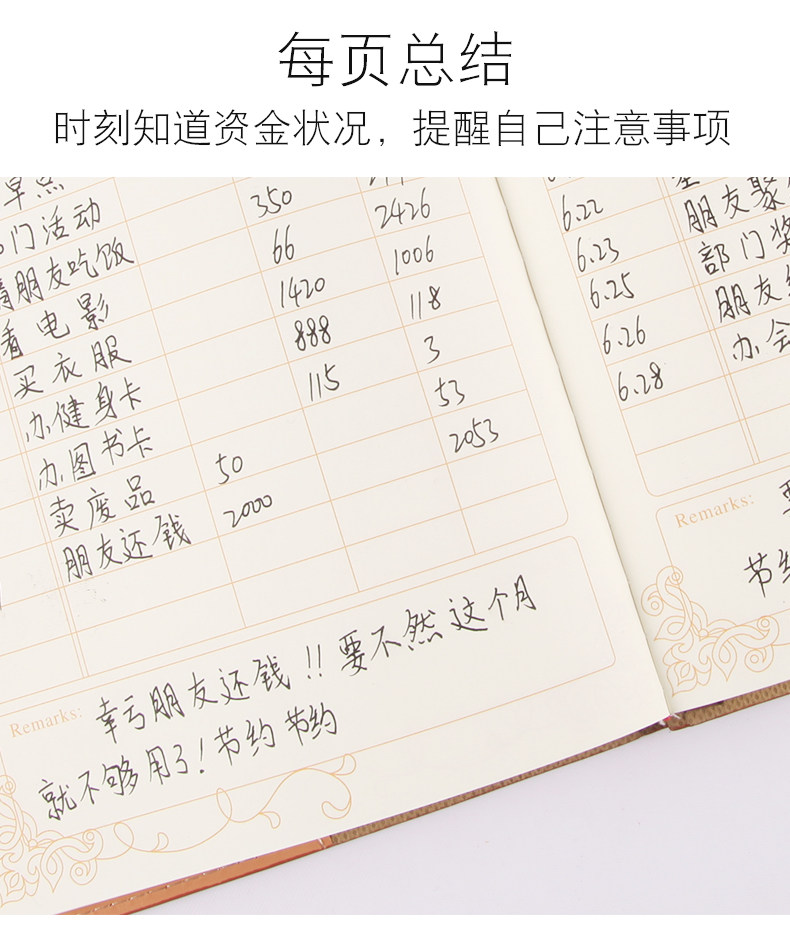 每页总结
时刻知道资金状况，提醒自己注意事项
早点
门活动
朋友吃饭 350
看电影 66 2426
买衣服 1420 1006
办健身卡 888 118
办图书卡 115 3
卖废品 50 53
朋友还钱 2000 2053
Remarks: 幸亏朋友还钱!!要不然这个月
就不够用了!节约节约
6.22
6.23 朋友聚
6.25 部门奖
6.26 朋友
6.28 办会
Remarks:
节约